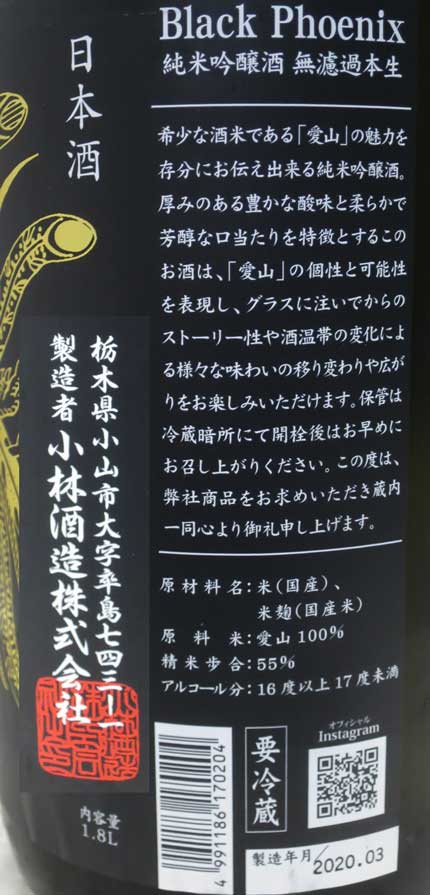 Black Phoenix
純米吟醸酒 無濾過本生
希少な酒米である「愛山」の魅力を
存分にお伝え出来る純米吟醸酒。
厚みのある豊かな酸味と柔らかで
芳醇な口当たりを特徴とするこの
お酒は、「愛山」の個性と可能性
を表現し、グラスに注いでからの
ストーリー性や酒温帯の変化によ
る様々な味わいの移り変わりや広が
りをお楽しみいただけます。保管は
冷蔵暗所にて開栓後はお早めに
お召し上がりください。この度は、
弊社商品をお求めいただき蔵内
一同心より御礼申し上げます。
原材料名:米(国産)、
米麹(国産米)
原料米:愛山100%
精米歩合:55%
アルコール分:16度以上17度未満
日本酒
栃木県小山市大字卒島七四三ー一
製造者小林酒造株式会社
内容量
1.8L
4991186170204
要冷蔵
オフィシャル
Instagram
製造年月
2020.03